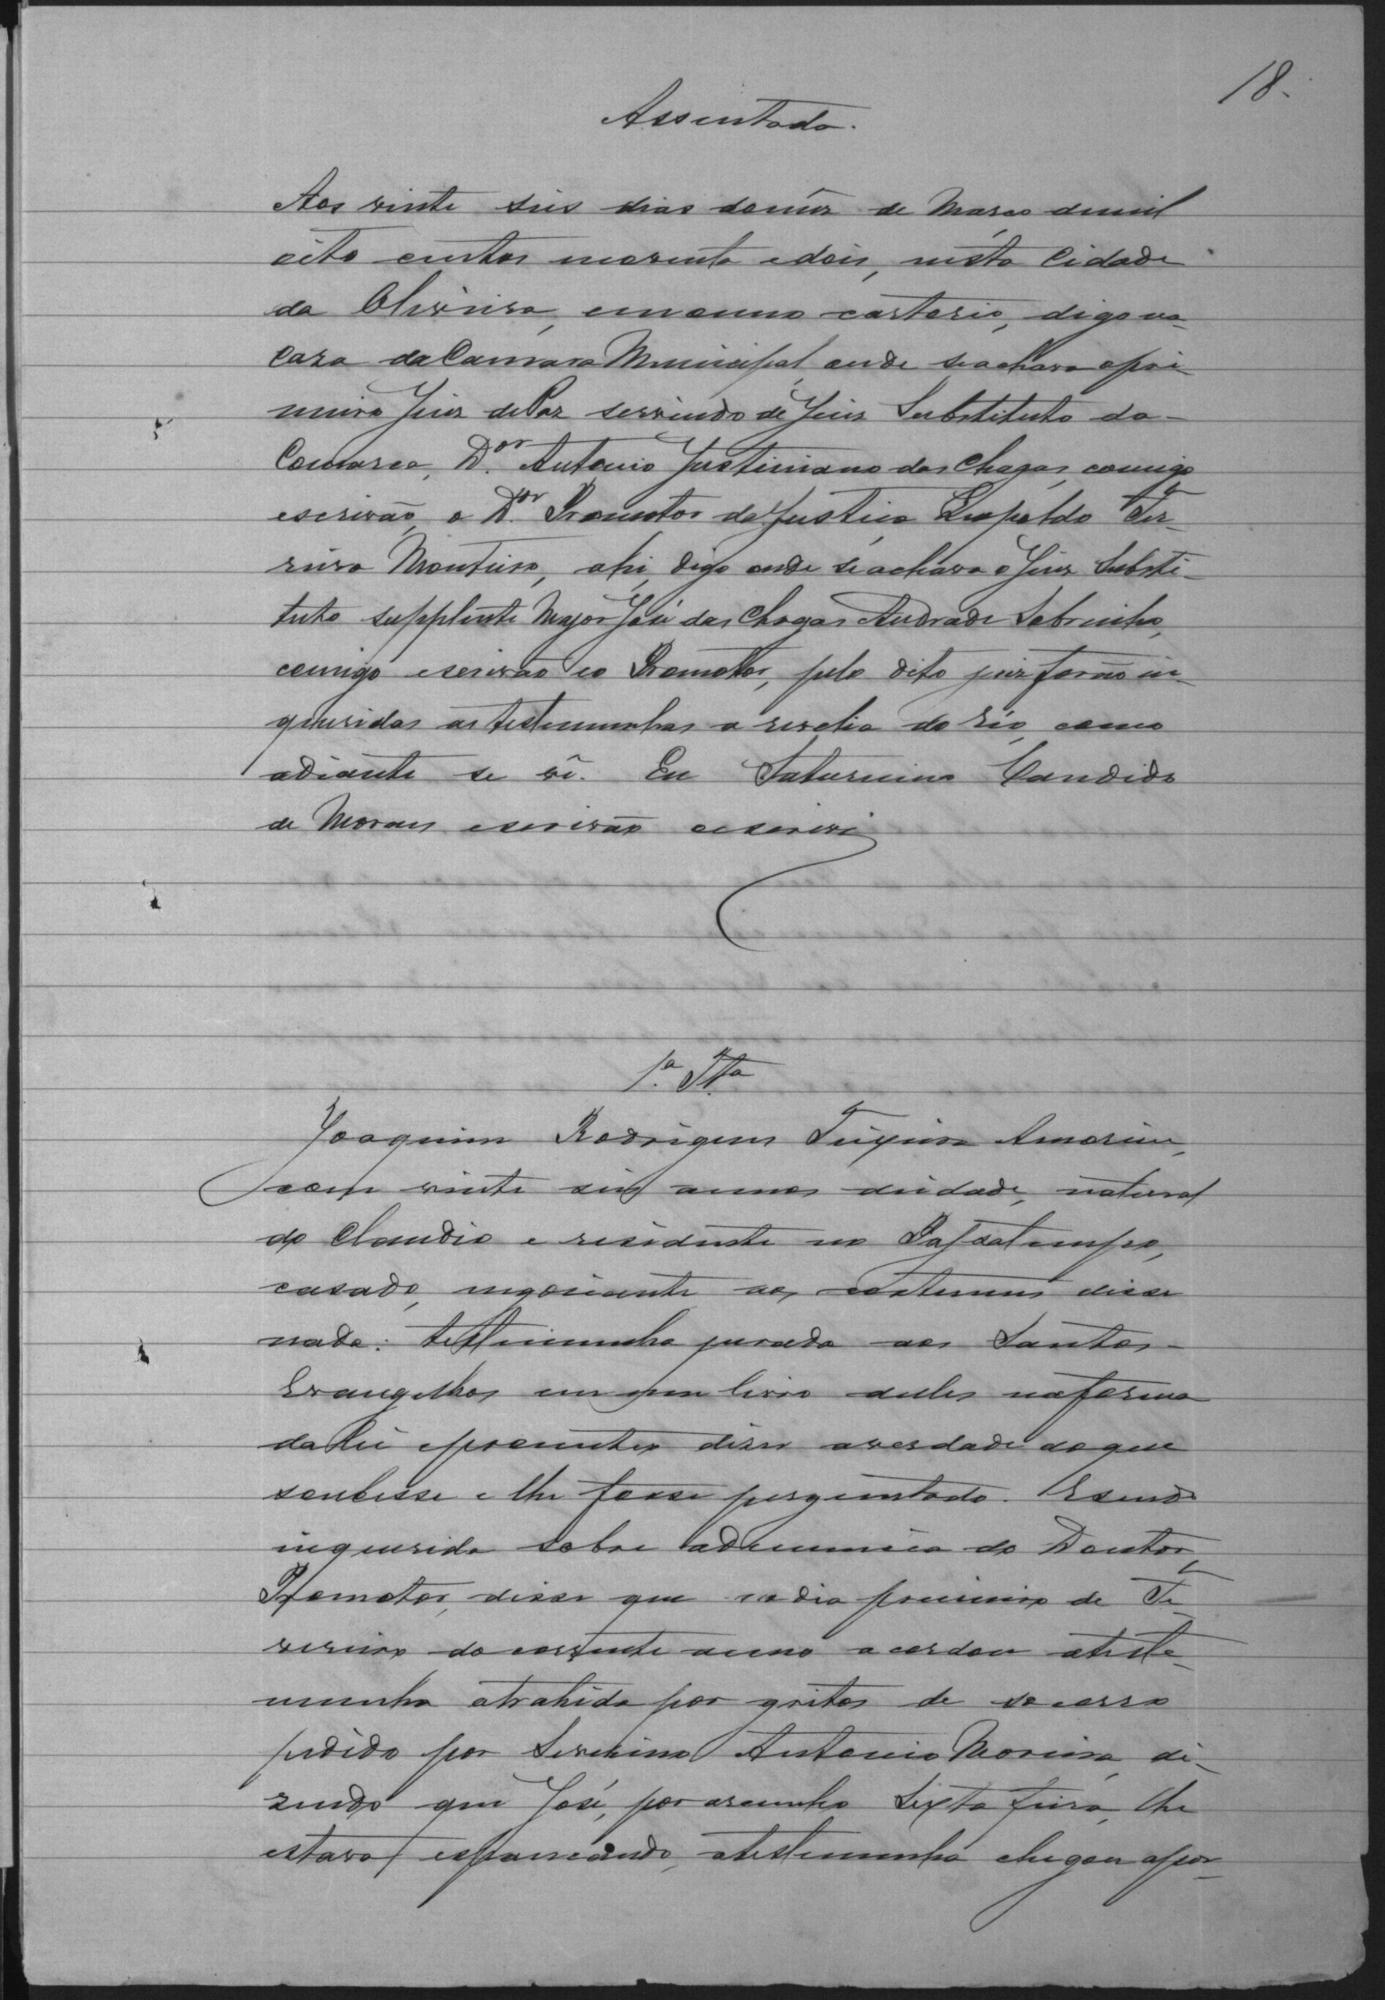 18.
Assentada.
Aos vinte seis dias domêz de Março demil
oito centos noventa edois, nesta Cidade
da Oliveira, em meu cartorio, digo na
Caza da Camara Municipal, onde se achava o pri-
meiro Juiz de Paz servindo de Juiz Substituto da
Comarca, D.or Antonio Justiniano das Chagas, comigo
escrivão, o D.or Promotor da Justiça Leopoldo Fer-
reira Monteiro, ahi, digo onde se achava o Juiz Substi-
tuto supplente Major José das Chagas Andrade Sobrinho,
comigo escrivão e o Promotor, pelo dito juiz forão in-
queridas as testemunhas a revelia do réo, como
adiante se vê. Eu Saturnino Candido
de Moraes escrivão o escrevi
1.a T.ta
Joaquim Rodrigues Teixeira Amorim,
com vinte seis annos de idade, natural
do Claudio e residente no Passatempo,
casado, negociante aos costumes disse
nada: testemunha jurada aos Santos
Evangelhos em um livro delles na forma
da Lei e prometteo dizer a verdade do que
soubesse e lhe fosse perguntado. E sendo
inquerida sobre a denuncia do Doutor
Promotor, disse que no dia primeiro de Fe-
vereiro do corrente anno acordou a teste-
munha atrahida por gritos de socorro
pedido por Severino Antonio Moreira, di-
zendo que José, por alcunha Sexta feira, lhe
estava espancando, a testemunha chegou a por-